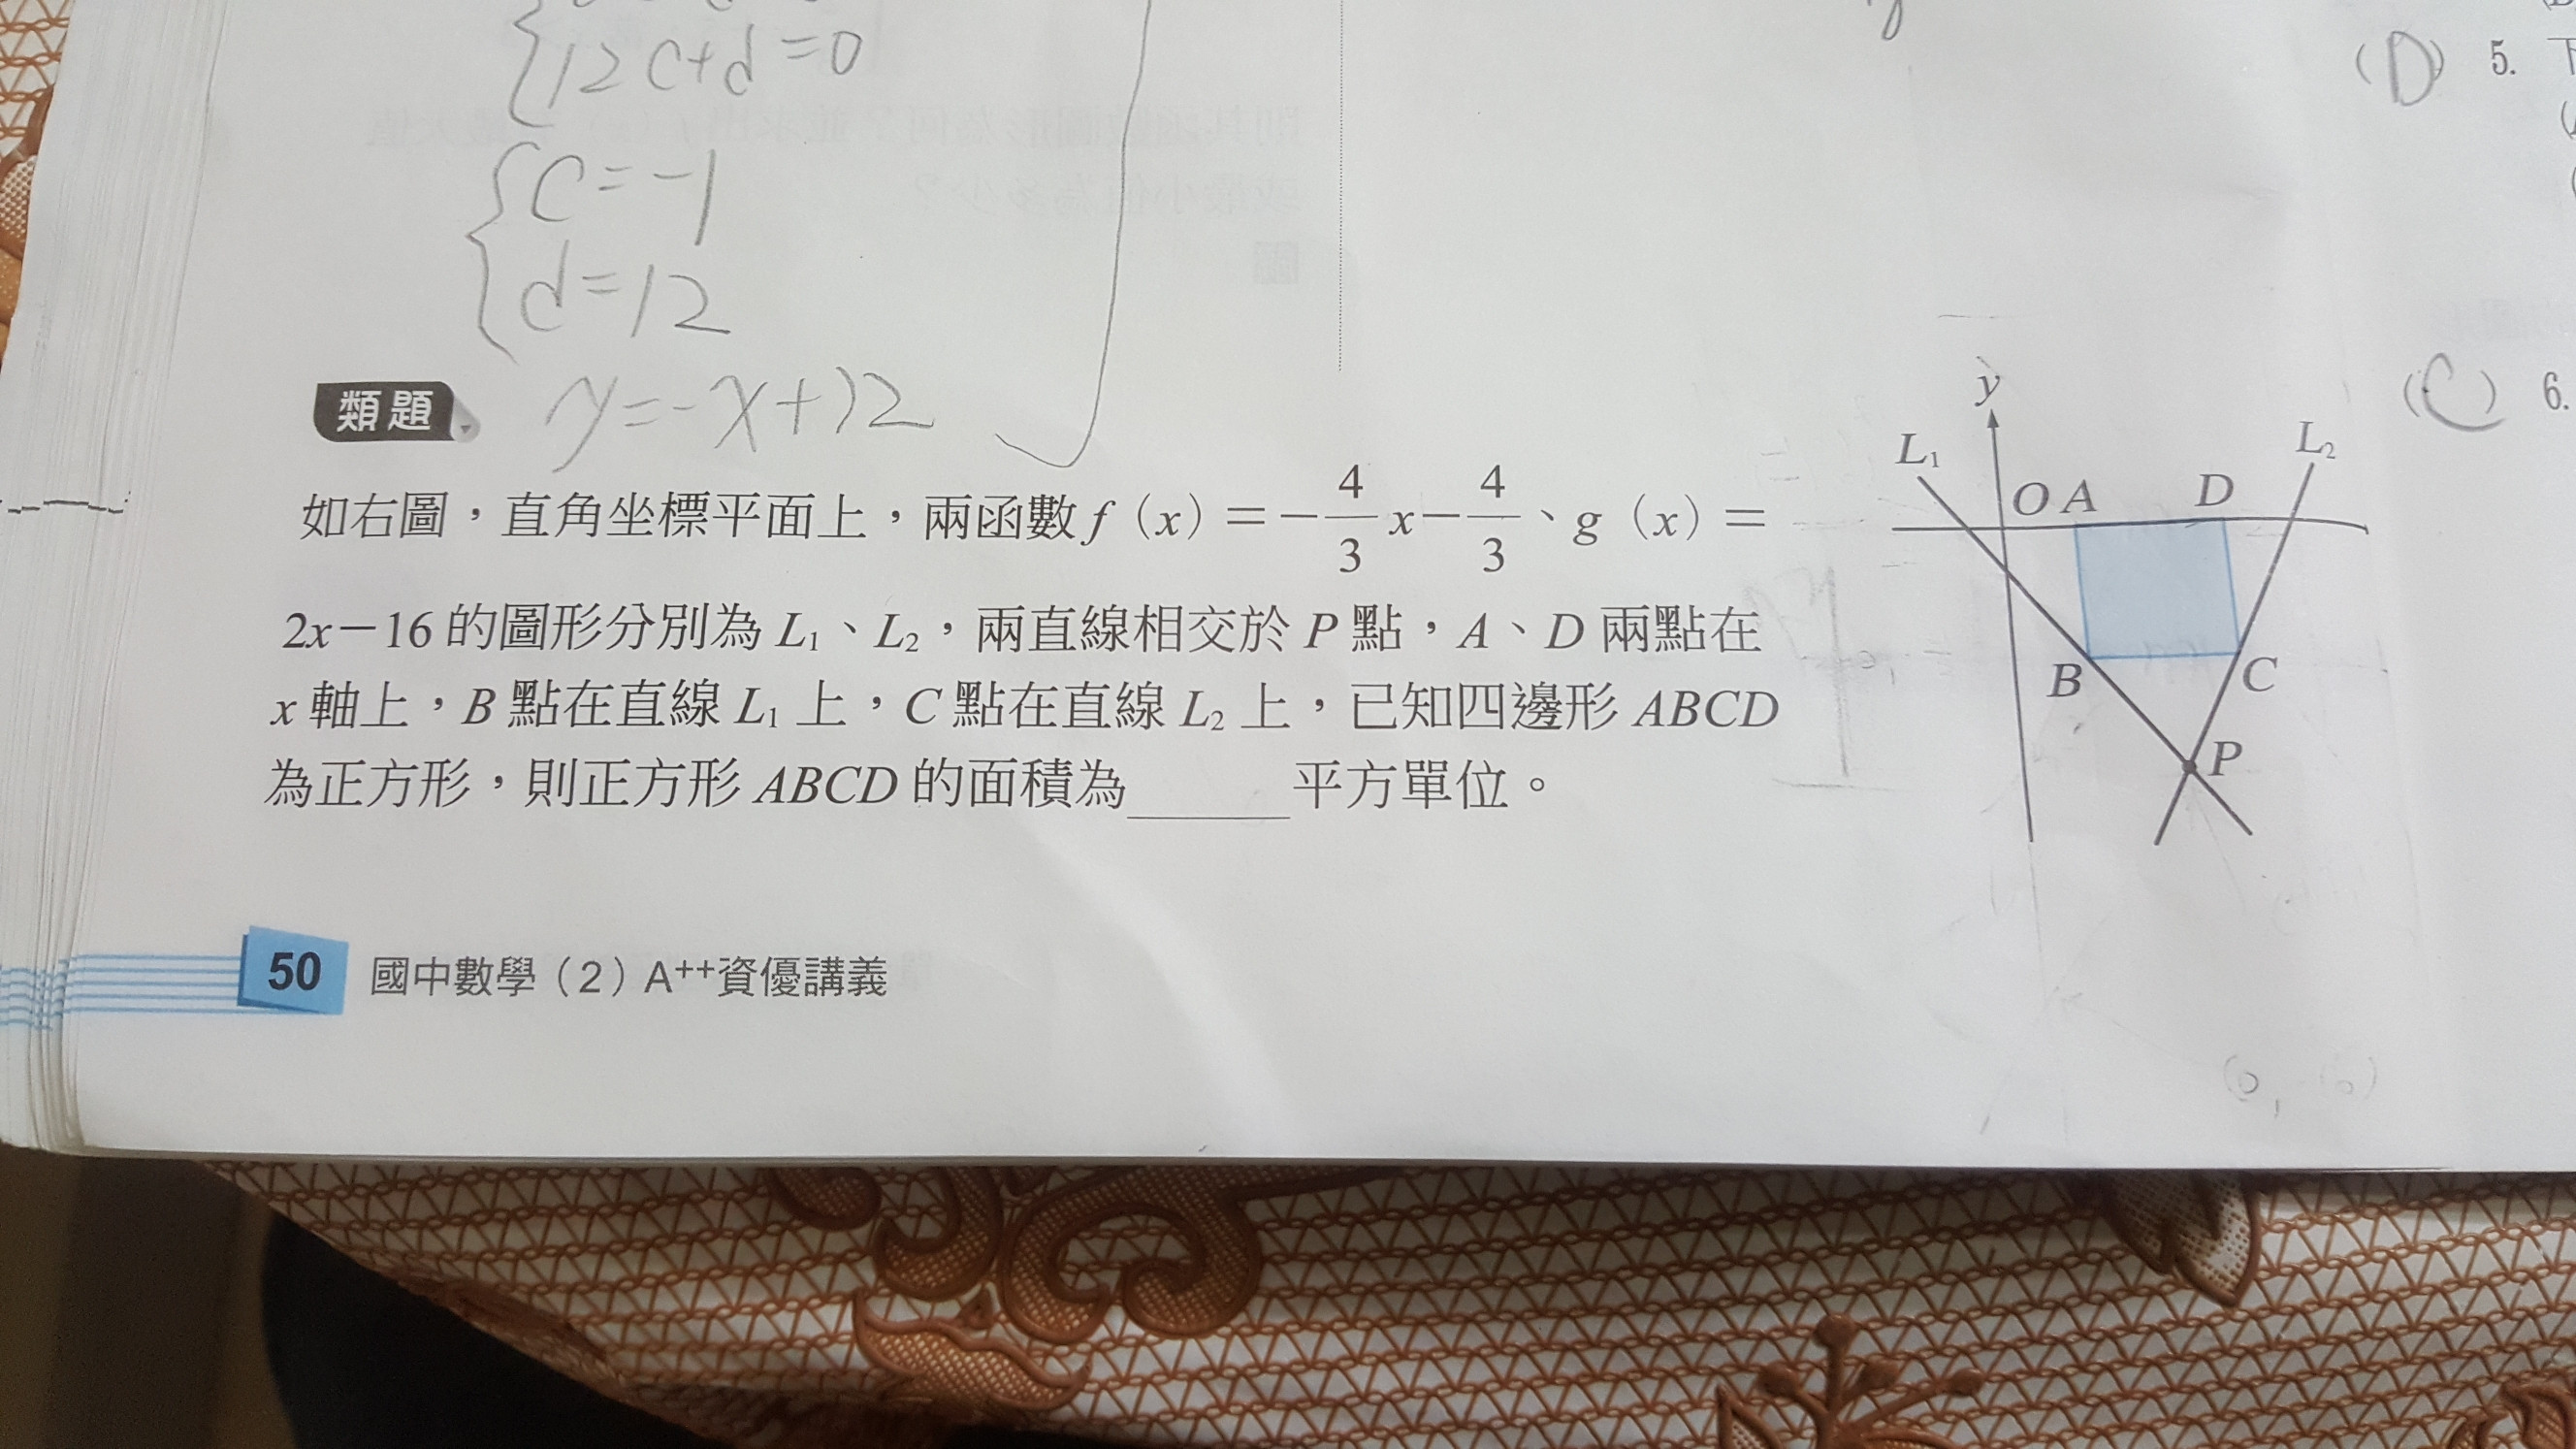 12c+d=0
c=-1
d=12
y=-x+12
類題
如右圖，直角坐標平面上，兩函數 f（x）＝－4/3 x－4/3、g（x）＝
2x－16 的圖形分別為 L₁、L₂，兩直線相交於 P 點，A、D 兩點在
x 軸上，B 點在直線 L₁ 上，C 點在直線 L₂ 上，已知四邊形 ABCD
為正方形，則正方形 ABCD 的面積為______平方單位。
y
L₁
L₂
O A D
B C
P
50 國中數學（2）A⁺⁺資優講義
（D）5. 下
（C）6.